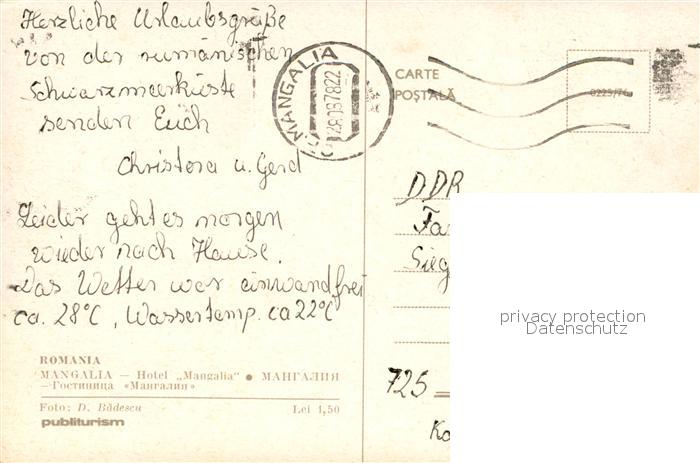 Herzliche Urlaubsgrüße
von der rumänischen
Schwarzmeerküste
senden Euch
Christora u. Gerd
Leider geht es morgen
wieder nach Hause.
Das Wetter war einwandfrei
ca. 28°C, Wassertemp. ca 22°C
ROMANIA
MANGALIA — Hotel „Mangalia“ ● МАНГАЛИЯ
—Гостиница «Мангалия»
Foto: D. Bădescu Lei 1,50
publiturism
MANGALIA
CARTE
POȘTALĂ
0223/76
DDR
Fa
Sieg
725
Ko
privacy protection
Datenschutz